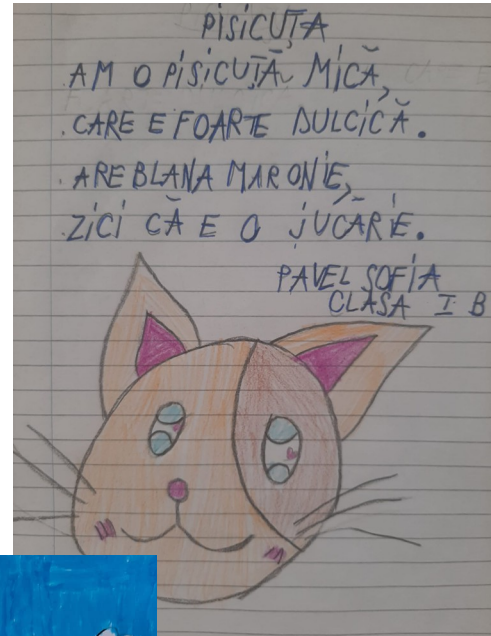 PISICUȚA
AM O PISICUȚĂ MICĂ,
CARE E FOARTE DULCICĂ.
ARE BLANA MARONIE,
ZICI CĂ E O JUCĂRIE.
PAVEL SOFIA
CLASA I B